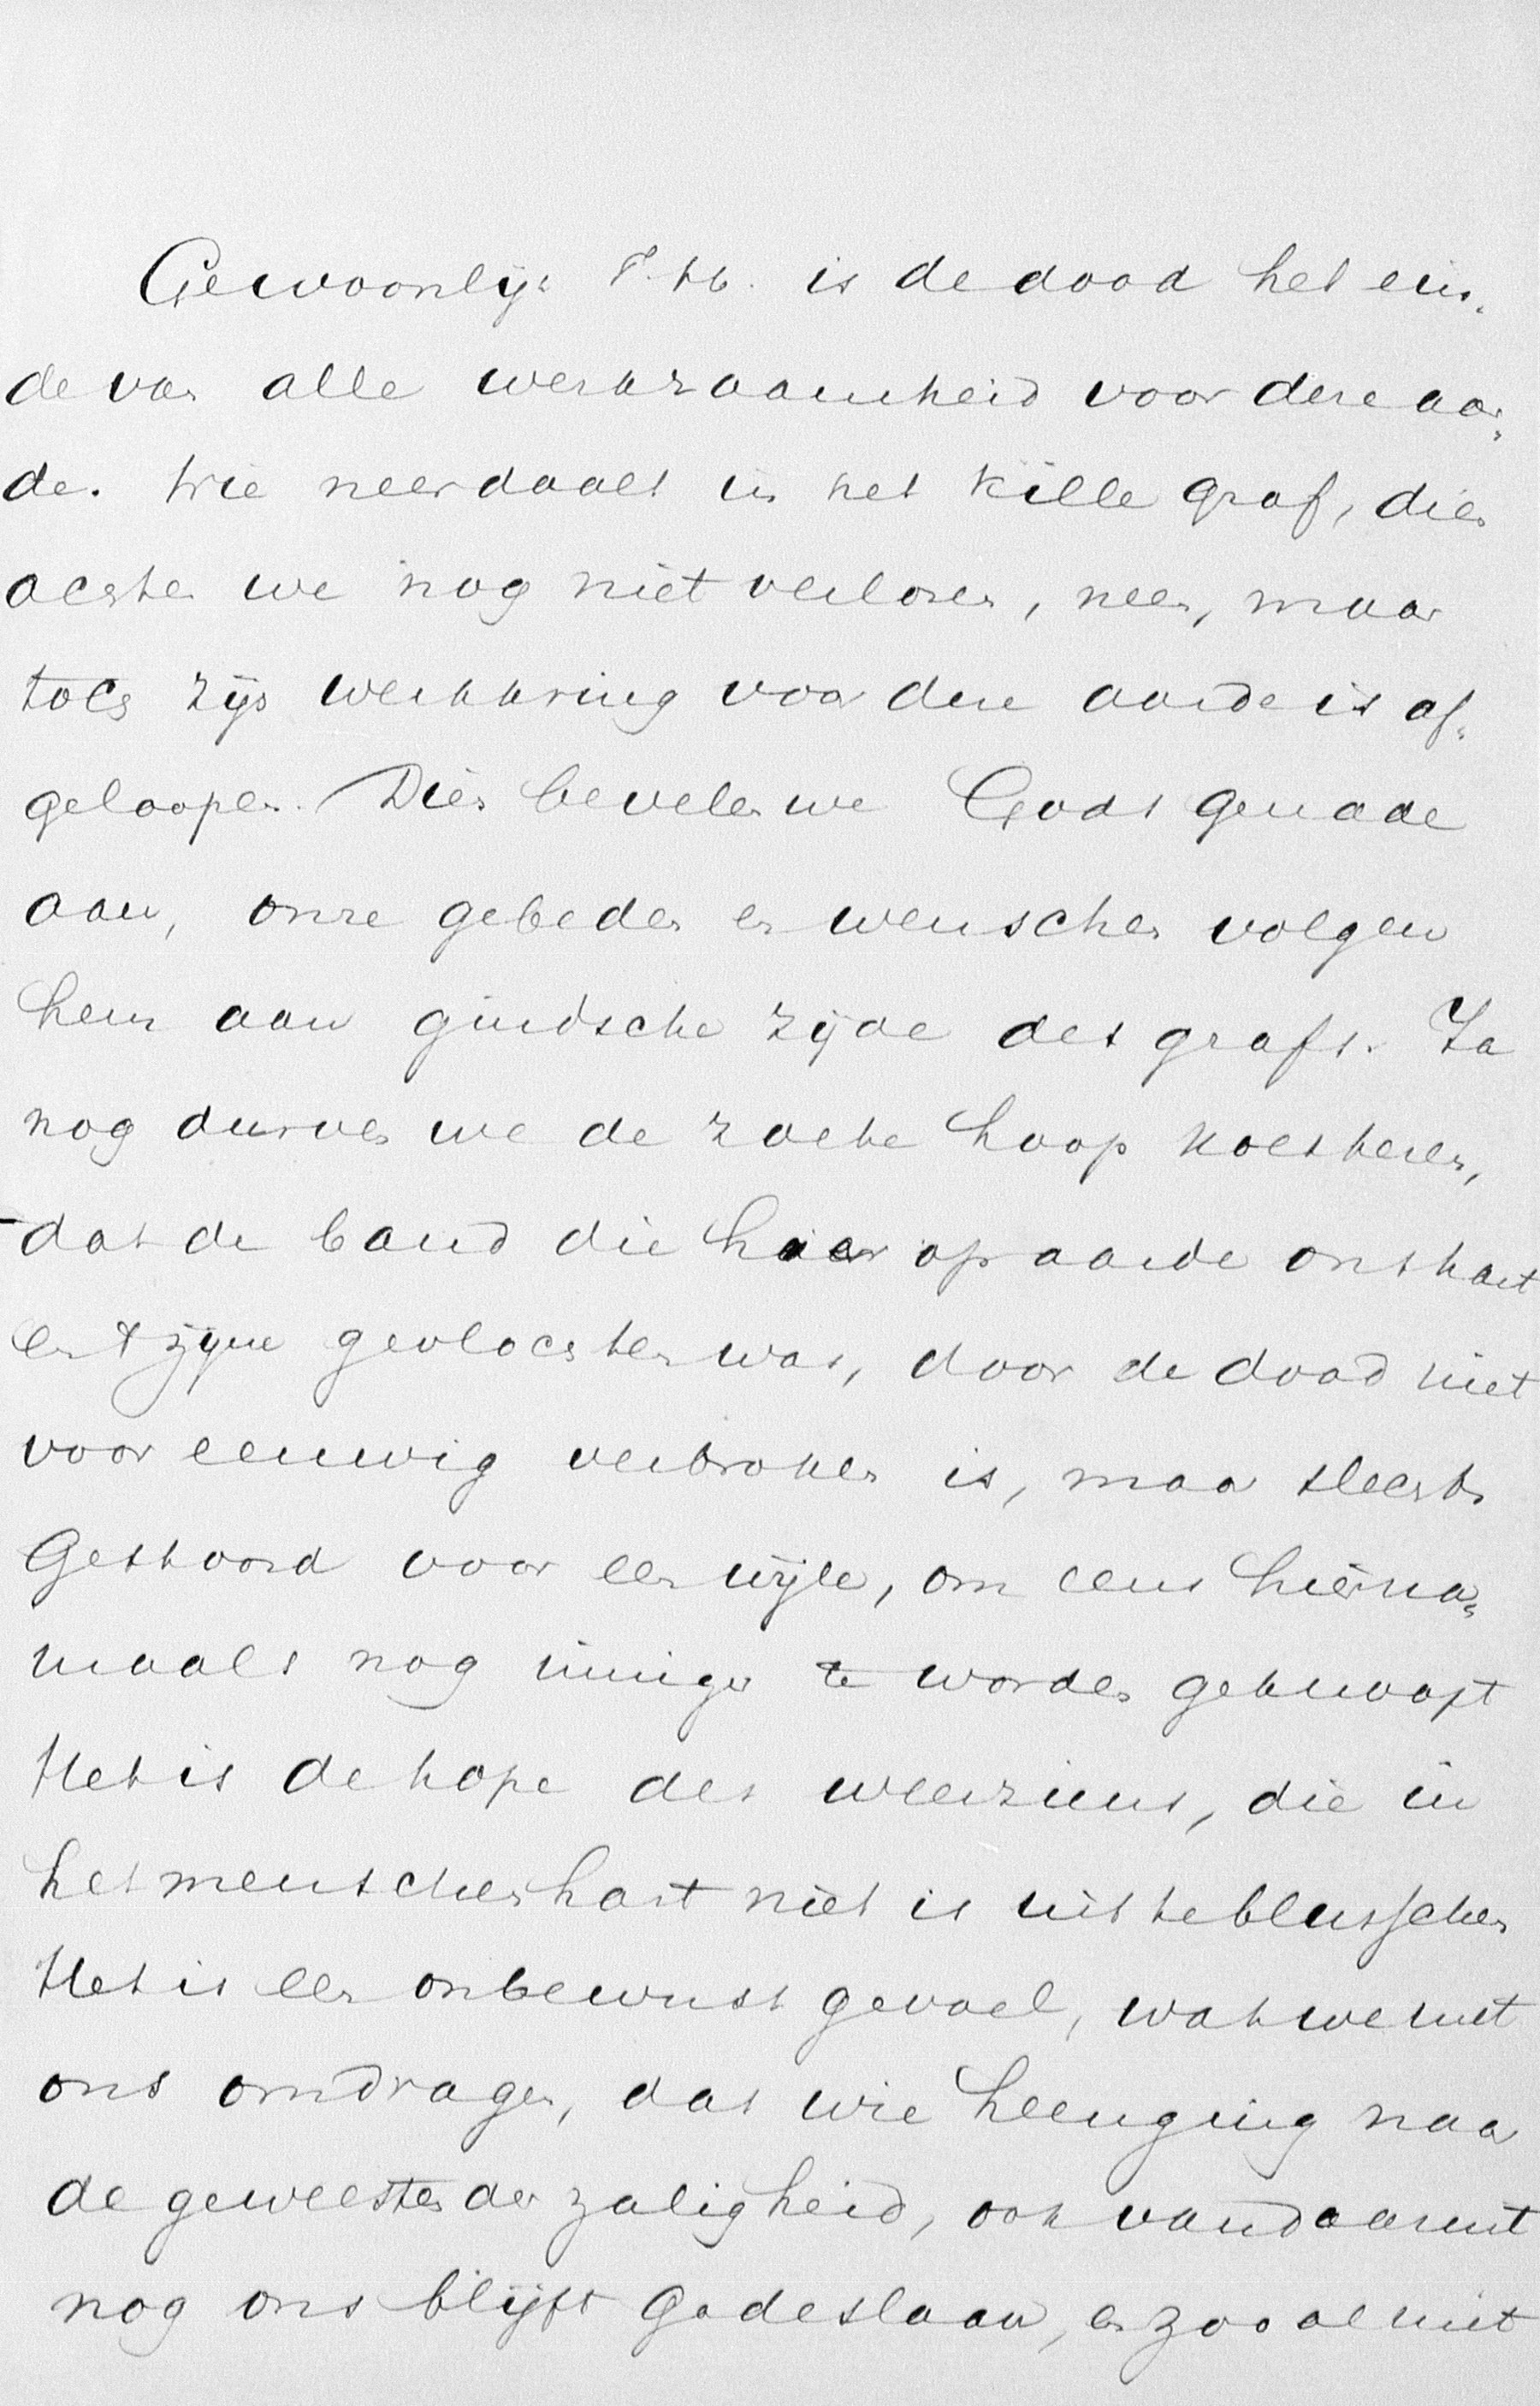 Gewoonlijk T. H. is de dood het ein-
de van alle werkzaamheid voor deze aar-
de. Wie neerdaalt in het kille graf, dien
achten we nog niet verloren, neen, maar
toch zijn werkkring voor deze aarde is af-
geloopen. Dien bevelen we Gods genade
aan, onze gebeden en wenschen volgen
hem aan gindsche zijde des grafs. Ja
nog durven we de zoete hoop koesteren,
dat de band die hier op aarde ons hart
en 't zijne gevlochten was, door de dood niet
voor eeuwig verbroken is, maar slechts
Gestoord voor een wijle, om eens hierna-
maals nog inniger te worden geknoopt
Het is de hope des weerziens, die in
het menschenhart niet is uit te blusschen
Het is een onbewust gevoel, wat we met
ons omdragen, dat wie heenging naar
de gewesten der zaligheid, ook vandaar uit
nog ons blijft Gadeslaan, en zoo al niet